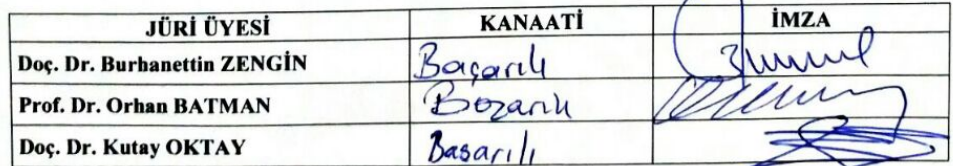 JÜRİ ÜYESİ KANAATİ İMZA
Doç. Dr. Burhanettin ZENGİN Başarılı
Prof. Dr. Orhan BATMAN Başarılı
Doç. Dr. Kutay OKTAY Başarılı